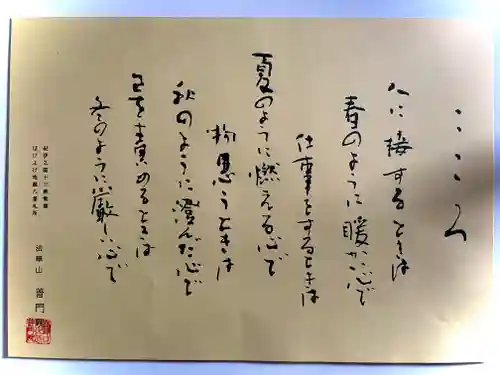 こころ
人に接するときは
春のように暖かい心で
仕事をするときは
夏のように燃える心で
物思うときは
秋のように澄んだ心で
己を責めるときは
冬のように厳しい心で
法華山 普門院